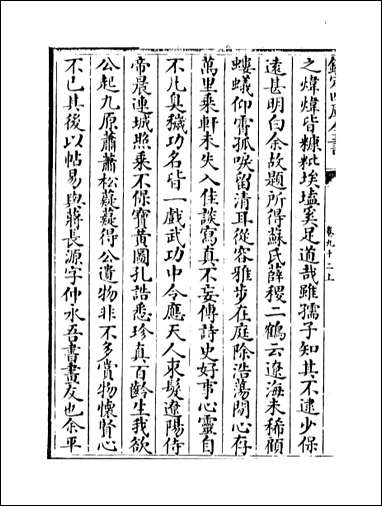 欽定四庫全書
卷九十二上
之煒煒皆糠粃埃壒奚足道哉雖孺子知其不逮少保
遠甚明白余故題所得蘇氏薛稷二鶴云遼海未稀顧
螻蟻仰霄孤唳留清耳從容雅步在庭除浩蕩閒心存
萬里乘軒未失入佳談寫真不妄傳詩史好事心靈自
不凡臭穢功名皆一戲武功中令應天人束髮遼陽侍
帝晨連城照乘不保寶黃圖孔誥悉珍真百齡生我欲
公起九原蕭蕭松薿薿得公遺物非不多賞物懷賢心
不已其後以帖易與蔣長源字仲永吾書畫友也余平